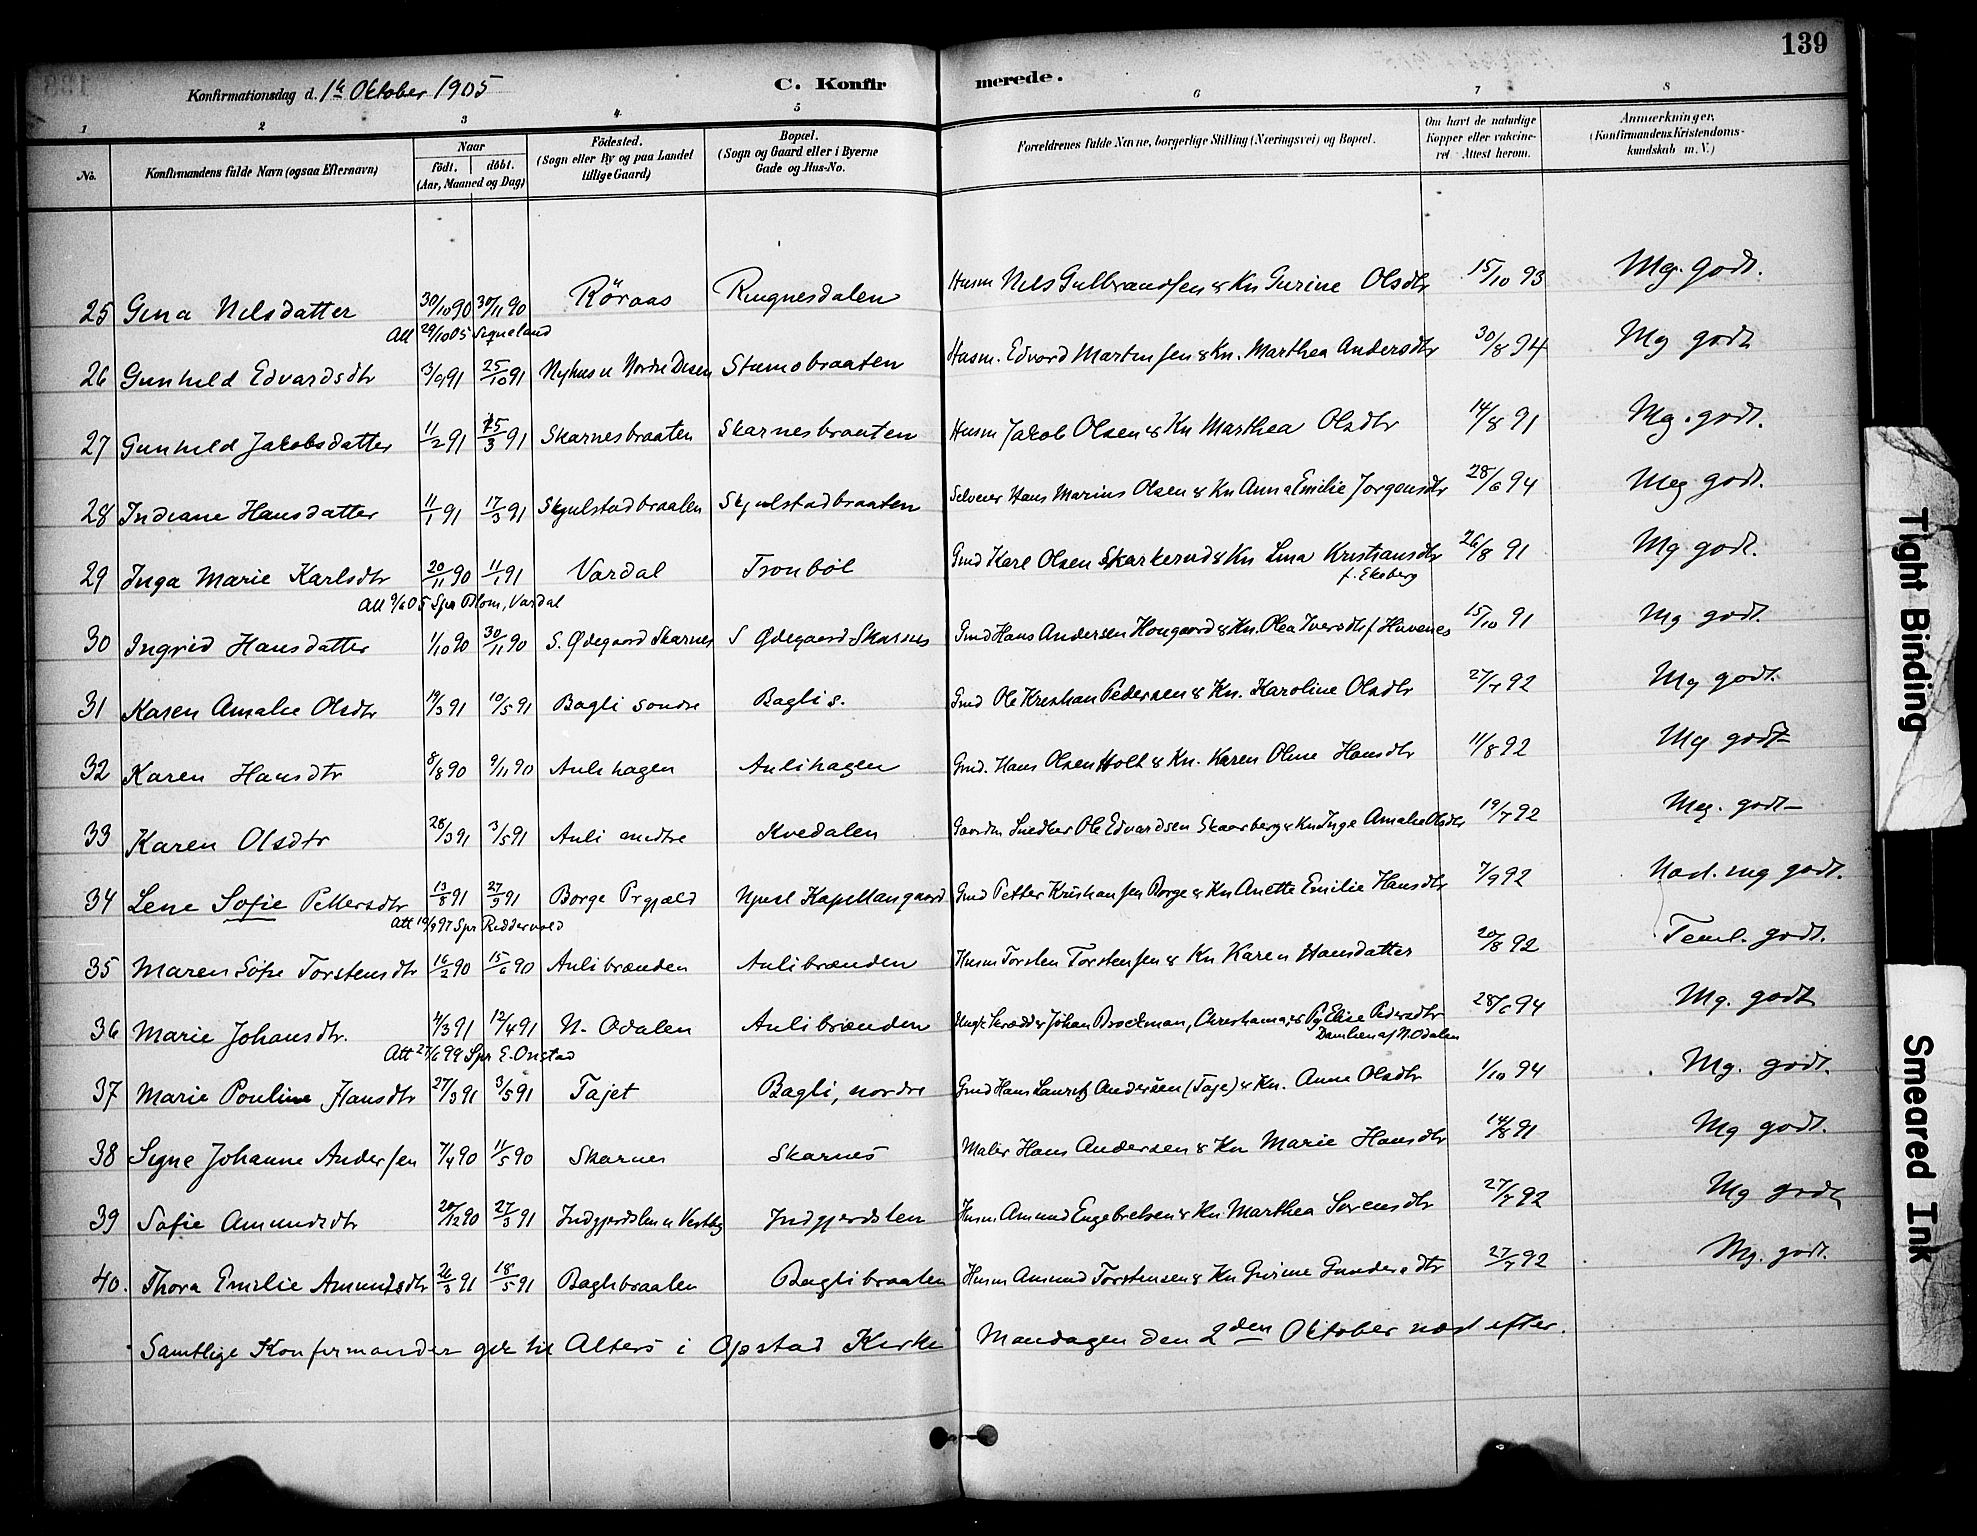 139
Konfirmationsdag d. 1ste Oktober 1905
C. Konfirmerede.
1 2 3 4 5 6 7 8
No. Konfirmandens fulde Navn (ogsaa Efternavn) Naar födt. döbt. (Aar, Maaned og Dag) Födested. (Sogn eller By og paa Landet tillige Gaard) Bopæl. (Sogn og Gaard eller i Byerne Gade og Hus-No. Forældrenes fulde Navne, borgerlige Stilling (Næringsvei) og Bopæl. Om havt de naturlige Kopper eller vakcineret Attest herom. Anmærkninger, (Konfirmandens Kristendomskundskab m.V.)
25 Gina Nilsdatter 30/10 90 30/11 90 Röraas Ringnesdalen Husm Nils Gulbrandsen & Kn Gurine Olsdtr 15/10 93 Mg. godt.
Att 29/10 05
26 Gunhild Edvardsdtr 3/9 91 25/10 91 Nyhus u Nordre Disen Stumobraaten Husm. Edvard Martinsen & Kn. Marthea Andersdtr 30/8 94 Mg godt
27 Gunhild Jakobsdatter 11/2 91 15/3 91 Skarnesbraaten Skarnesbraaten Husm Jakob Olsen & Kn Marthea Olsdtr 14/8 91 Mg. godt.
28 Indiane Hansdatter 11/1 91 17/3 91 Skjulstadbraaten Skjulstadbraaten Selveier Hans Marius Olsen & Kn Anna Emilie Jorgensdtr 28/6 94 Meg godt.
29 Inga Marie Karlsdtr 20/11 90 11/1 91 Vardal Tronböl Gmd Karl Olsen Skarkerud & Kn Lina Kristiansdtr f. Ekeberg 26/8 91 Mg godt.
Att 9/6 05 Spr Blom, Vardal
30 Ingrid Hansdatter 1/10 90 30/11 90 S. Ødegaard Skarnes S Ødegaard Skarnes Gmd Hans Andersen Hougaard & Kn. Olea Iversdtr f. Huvenes 15/10 91 Mg godt.
31 Karen Amalie Olsdtr 19/3 91 10/5 91 Bagli söndre Bagli s. Gmd Ole Kristian Pedersen & Kn. Karoline Olsdtr 27/7 92 Mg godt.
32 Karen Hansdtr 8/8 90 9/11 90 Aulihagen Aulihagen Gmd. Hans Olsen Holt & Kn. Karen Oline Hansdtr 11/8 92 Mg godt
33 Karen Olsdtr 28/3 91 3/5 91 Auli medtre Kvedalen Gaardm Snedker Ole Edvardsen Skaarberg & Kn Inge Amalie Olsdtr 19/7 92 Meg. godt
34 Lene Sofie Pettersdtr 13/8 91 27/9 91 Borge Prgjæld Njusl Kapellangaard Gmd Petter Kristiansen Borge & Kn Anette Emilie Hansdtr 7/9 92 Nost. mg godt.
Att 19/9 97 Spr Reddervold
35 Maren Sofie Torstensdtr 16/2 90 15/6 90 Aulibrænden Aulibrænden Husm Torsten Torstensen & Kn Karen Hansdatter 20/8 92 Teml. godt.
36 Marie Johansdtr. 4/3 91 12/4 91 N. Odalen Aulibrænden Ungk Skrædder Johan Brockman, Christiania, & Pg Elise Pedersdtr Damlien af N. Odalen 28/6 94 Mg. godt
Att 27/6 99 Spr E. Onstad
37 Marie Pouline Hansdtr 27/3 91 3/5 91 Tajet Bagli, nordre Gmd Hans Lauritz Andersen (Taje) & Kn. Anne Olsdtr 1/10 94 Mg. godt.
38 Signe Johanne Andersen 7/4 90 11/5 90 Skarnes Skarnes Maler Hans Andersen & Kn Marie Hansdtr 14/8 91 Mg godt.
39 Sofie Amundsdtr 20/12 90 27/3 91 Indgjerdslen u Vestby Indgjerdslen Husm Amund Engebretsen & Kn Marthea Sorensdtr 27/7 92 Mg godt
40. Thora Emilie Amundsdtr 26/3 91 18/5 91 Baglibraaten Baglibraaten Husm Amund Torstensen & Kn Gurine Gundersdtr 27/7 92 Mg. godt.
Samtlige Konfirmander gik til Alters i Opstad Kirke Mandagen den 2den Oktober næst efter.
Tight Binding
Smeared Ink